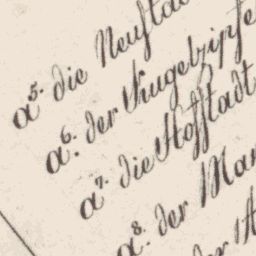 a⁵. die Neustad
a⁶. der Kugelzipfe
a⁷. die Hofstadt
a⁸. der Mar